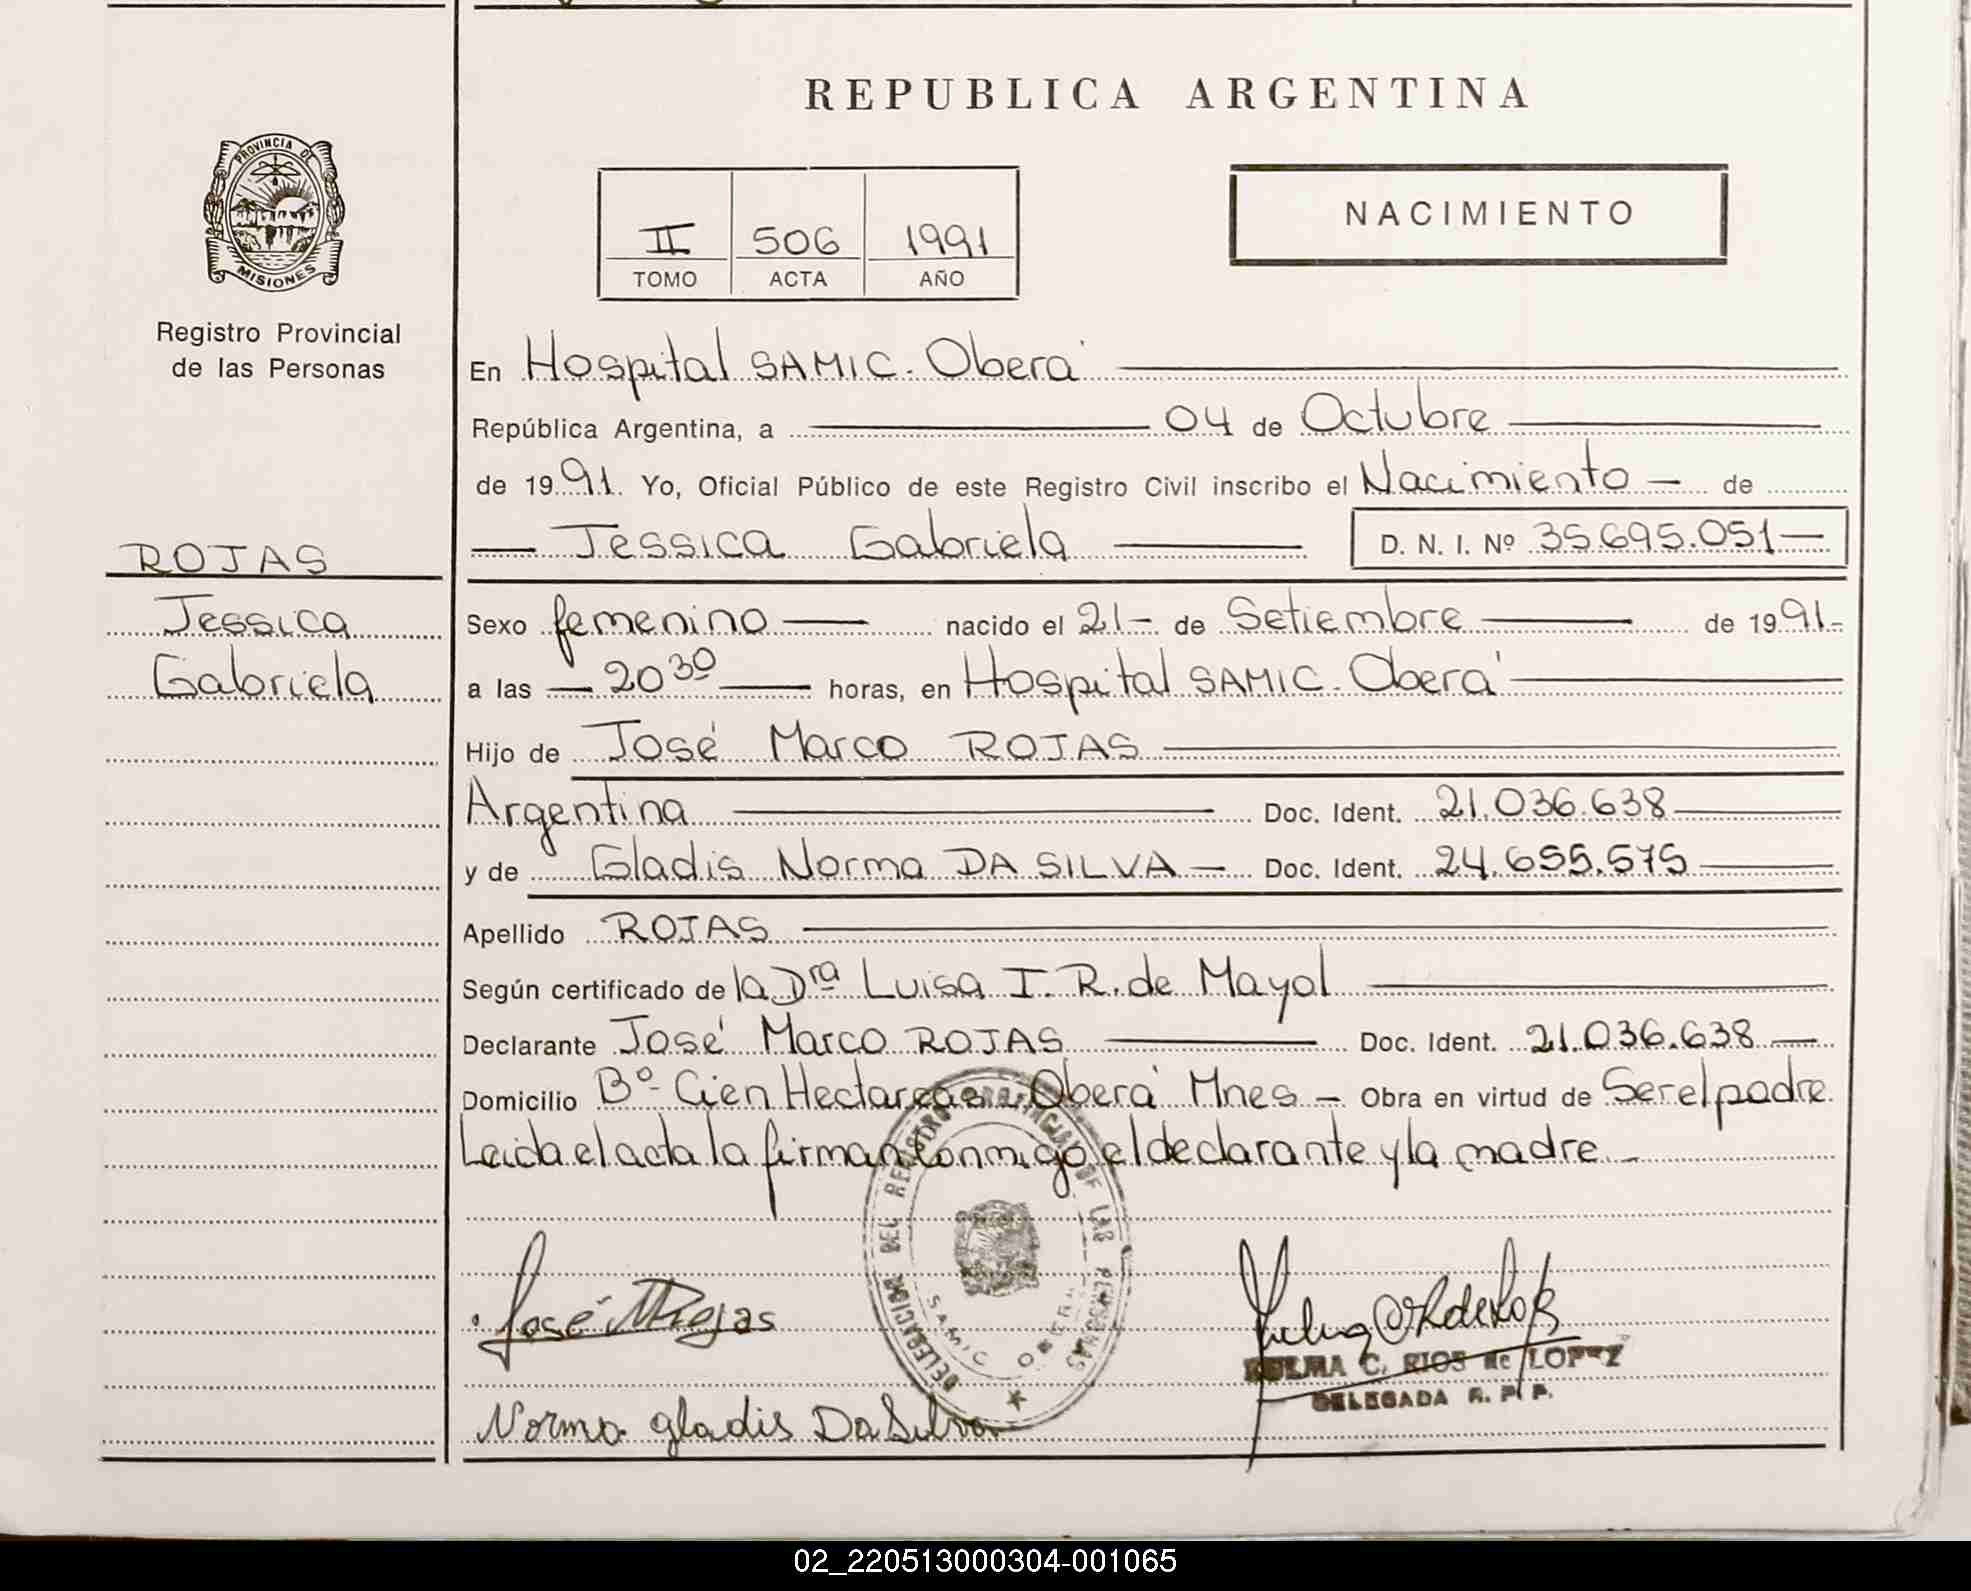 REPUBLICA ARGENTINA
PROVINCIA DE
MISIONES
Registro Provincial
de las Personas
II 506 1991
TOMO ACTA AÑO
NACIMIENTO
En Hospital SAMIC. Oberá
República Argentina, a 04 de Octubre
de 1991. Yo, Oficial Público de este Registro Civil inscribo el Nacimiento - de
Jessica Gabriela D. N. I. Nº 35.695.051-
ROJAS
Jessica
Gabriela
Sexo femenino nacido el 21- de Setiembre de 1991-
a las 20 30 horas, en Hospital SAMIC. Oberá
Hijo de José Marco ROJAS
Argentina Doc. Ident. 21.036.638
y de Gladis Norma DA SILVA - Doc. Ident. 24.655.575
Apellido ROJAS
Según certificado de la Dra Luisa I. R. de Mayol
Declarante José Marco ROJAS Doc. Ident. 21.036.638
Domicilio Bº Cien Hectareas - Oberá Mnes - Obra en virtud de Ser el padre.
Leida el acta la firman conmigo el declarante y la madre. -
DELEGACION DEL REGISTRO PROVINCIAL DE LAS PERSONAS
SAMIC OBERA
José M Rojas
ZULMA C. RIOS de LOPEZ
DELEGADA R. P. P.
Norma gladis Da Silva
02_220513000304-001065